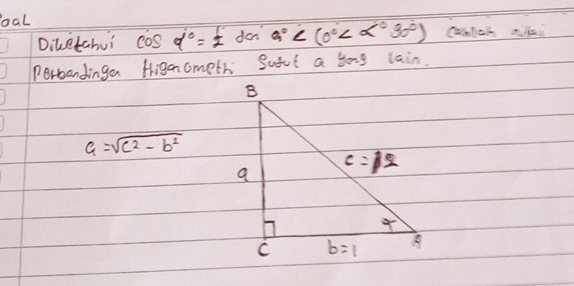 oal
Diketahui cos α° = 1/2 dan α° < (0° < α° 90°) carilah nilai
Perbandingan trigonometri Sudut a yang lain.
B
a = √c² - b²
a
c = 2
α
C
b = 1
A